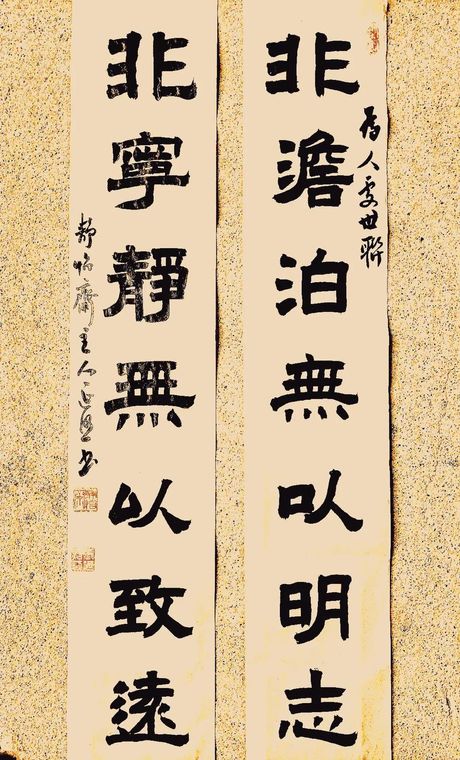 非澹泊無以明志
為人處世聯
非寧靜無以致遠
靜怡齋主人书